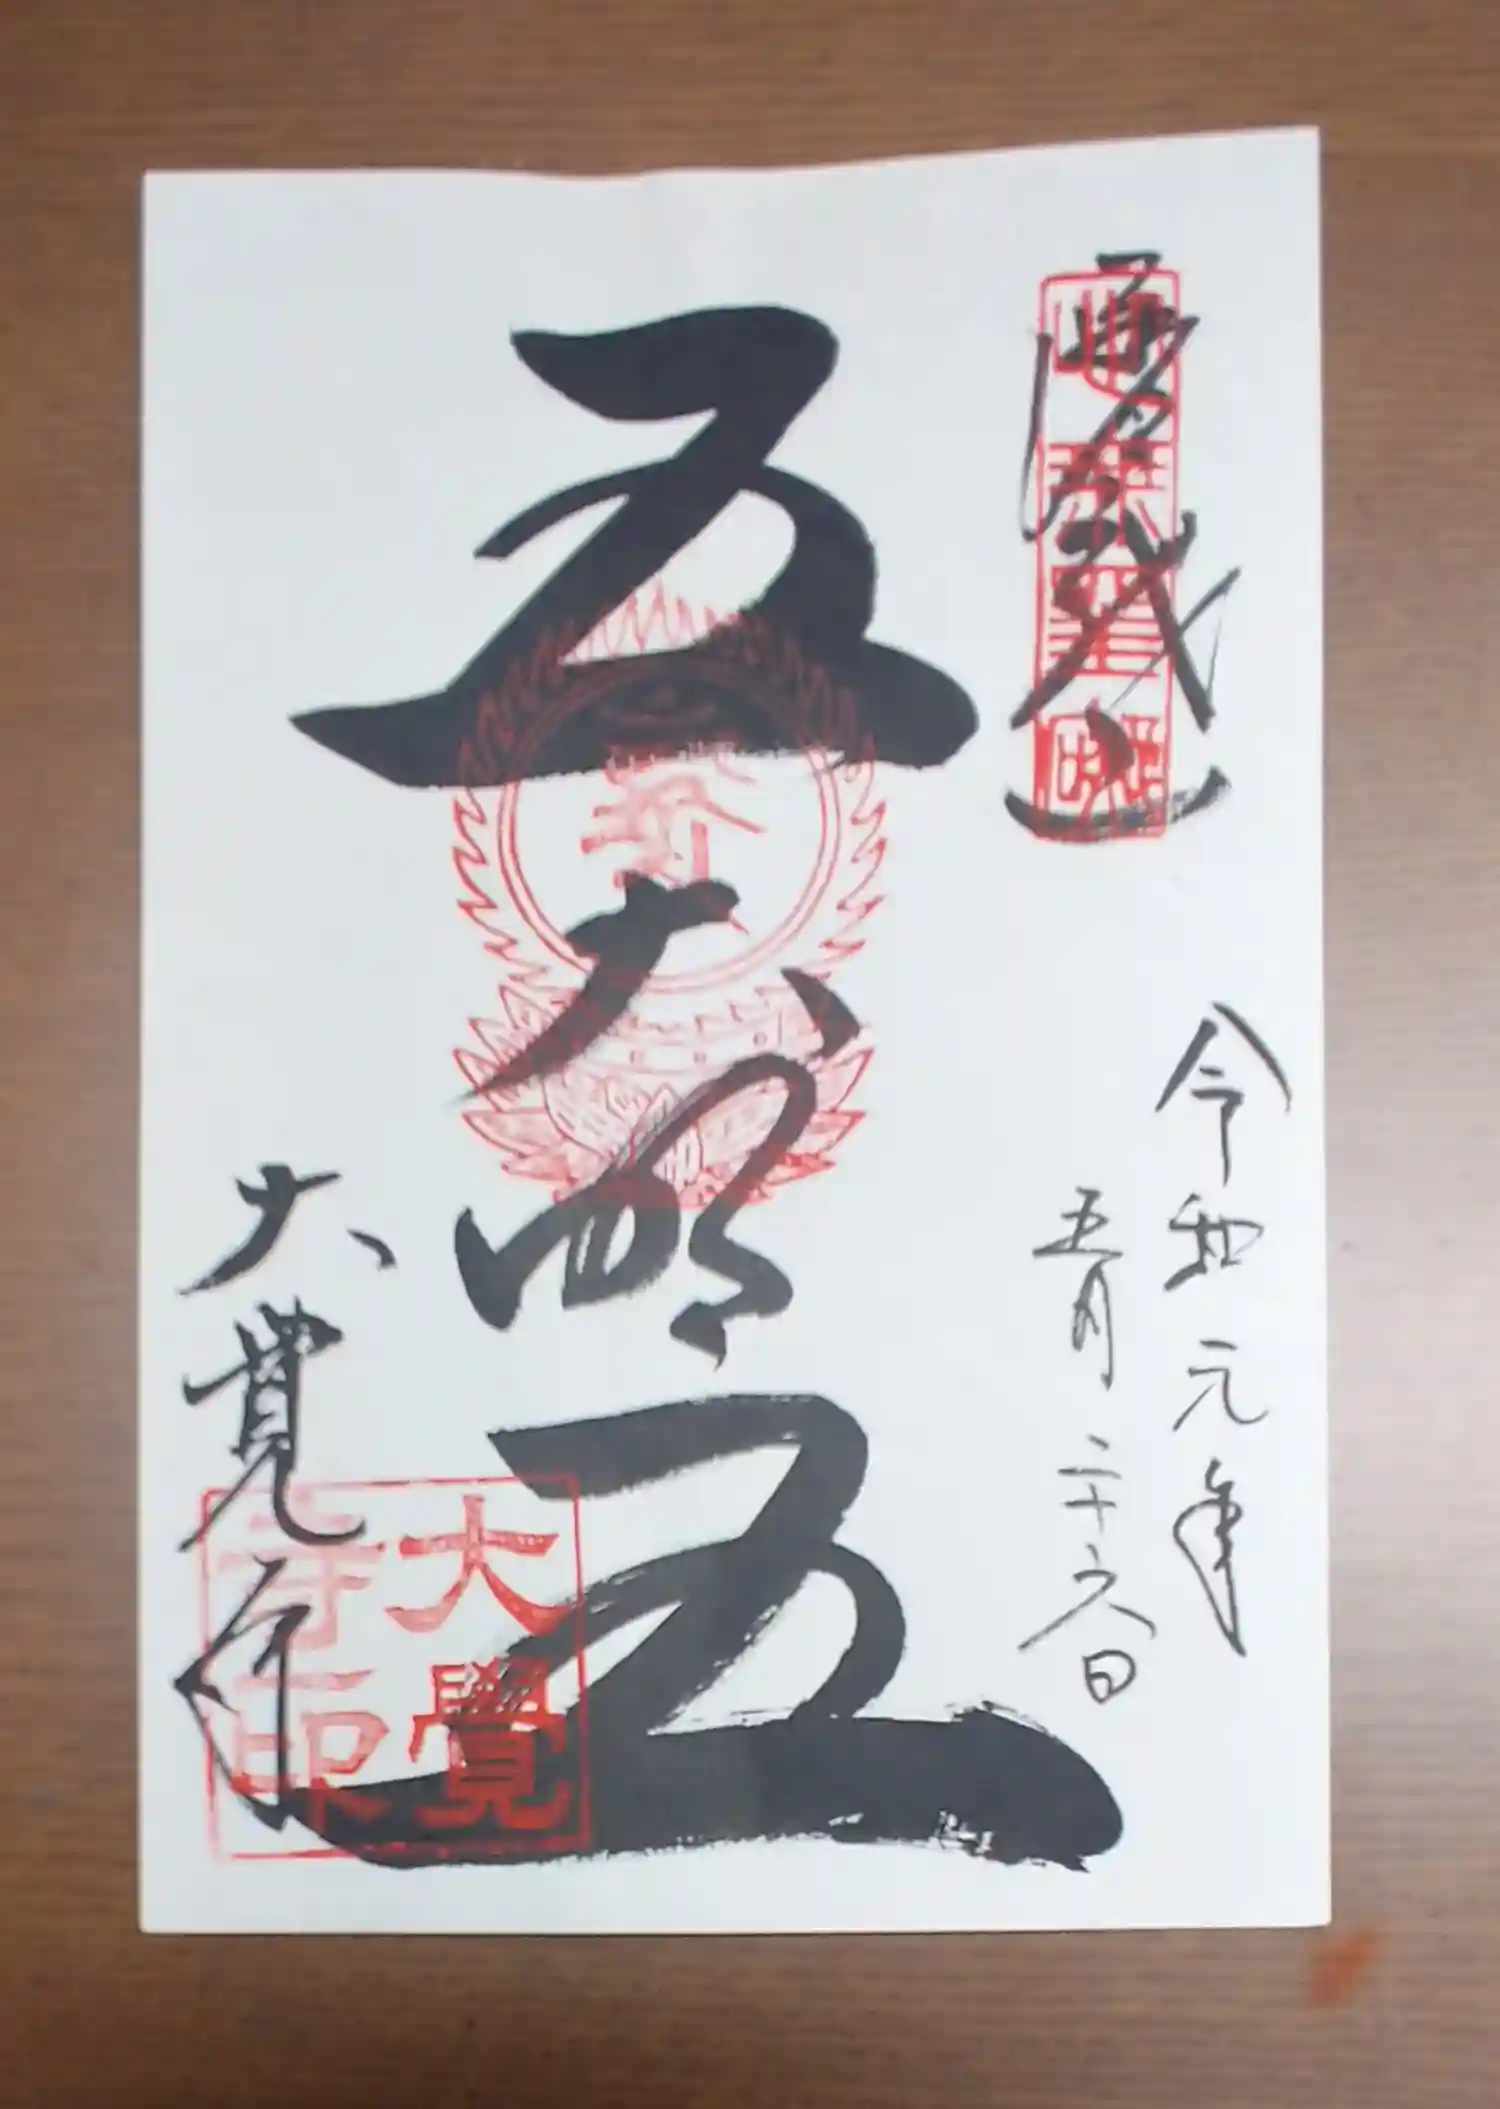 令和元年
五月二十六日
五大明王
大覚寺
大覺
寺印